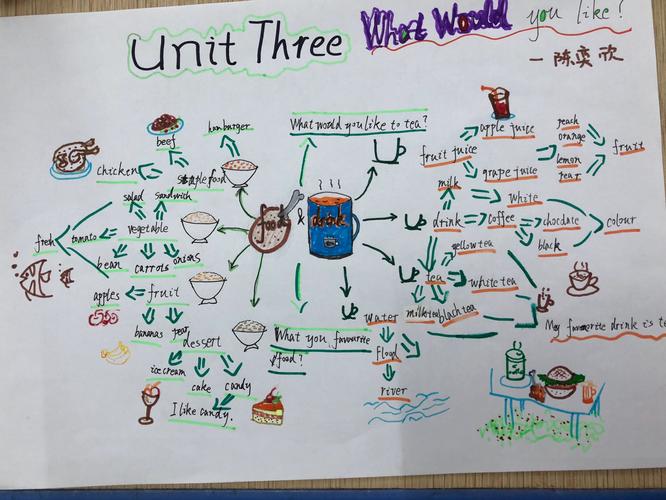 Unit Three What Would you like?
一陈奕欣
What would you like to tea?
hamburger
beef
chicken
staple food
salad sandwich
vegetable
tomato
fresh
bean carrots onions
apples fruit
bananas pear
dessert
ice cream cake candy
I like candy.
food & drink
What you favourite
food?
apple juice
fruit juice
grape juice
peach
orange
lemon
pear
fruit
milk
white
drink coffee chocdate
black
colour
yellow tea
tea white tea
milk tea black tea
water
flood
river
My favourite drink is te